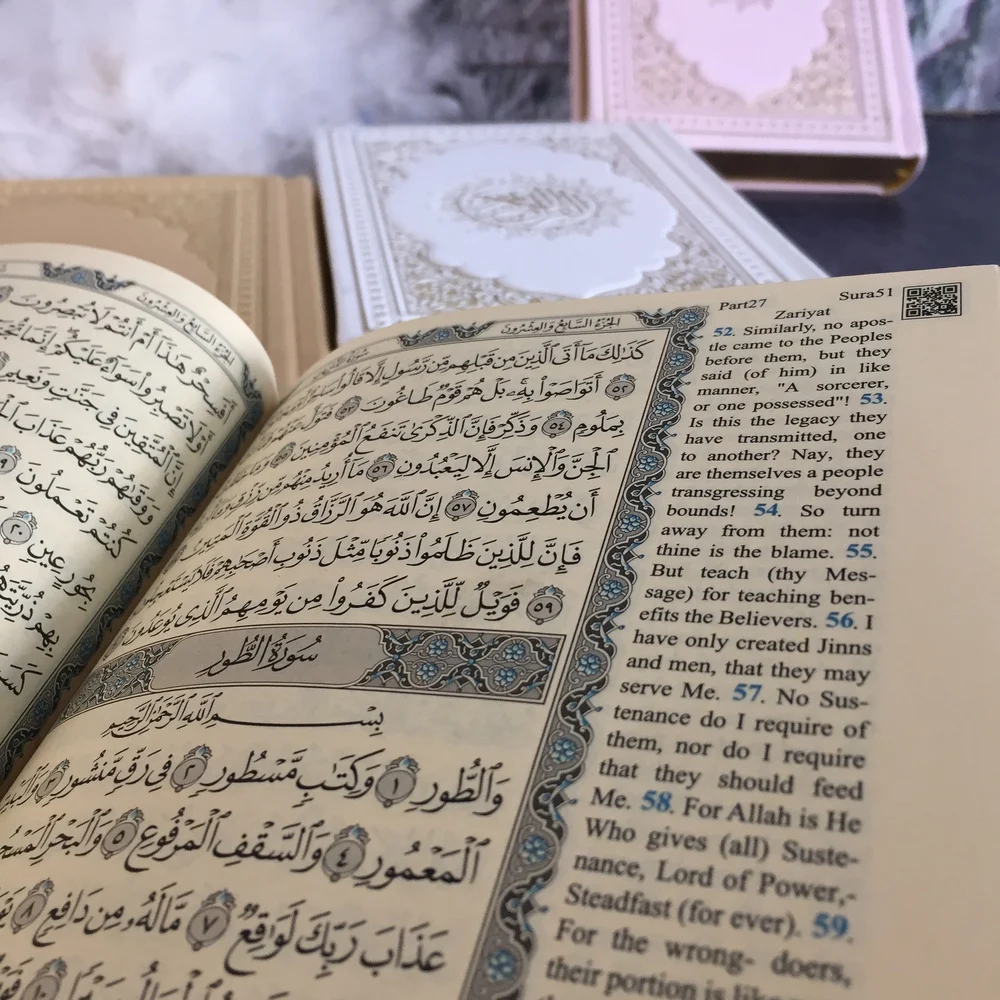 Part27 Sura51
Zariyat
52. Similarly, no apos-
tle came to the Peoples
before them, but they
said (of him) in like
manner, "A sorcerer,
or one possessed"! 53.
Is this the legacy they
have transmitted, one
to another? Nay, they
are themselves a people
transgressing beyond
bounds! 54. So turn
away from them: not
thine is the blame. 55.
But teach (thy Mes-
sage) for teaching ben-
efits the Believers. 56. I
have only created Jinns
and men, that they may
serve Me. 57. No Sus-
tenance do I require of
them, nor do I require
that they should feed
Me. 58. For Allah is He
Who gives (all) Suste-
nance, Lord of Power,-
Steadfast (for ever). 59.
For the wrong- doers,
their portion is like
الجزء السابع والعشرون
كَذَٰلِكَ مَآ أَتَى ٱلَّذِينَ مِن قَبْلِهِم مِّن رَّسُولٍ إِلَّا قَالُوا۟
٥٢ أَتَوَاصَوْا۟ بِهِۦ ۚ بَلْ هُمْ قَوْمٌ طَاغُونَ ٥٣ فَتَوَلَّ
بِمَلُومٍ ٥٤ وَذَكِّرْ فَإِنَّ ٱلذِّكْرَىٰ تَنفَعُ ٱلْمُؤْمِنِينَ
ٱلْجِنَّ وَٱلْإِنسَ إِلَّا لِيَعْبُدُونِ ٥٦ مَآ أُرِيدُ مِنْهُم مِّن رِّزْقٍ
أَن يُطْعِمُونِ ٥٧ إِنَّ ٱللَّهَ هُوَ ٱلرَّزَّاقُ ذُو ٱلْقُوَّةِ ٱلْمَتِينُ
فَإِنَّ لِلَّذِينَ ظَلَمُوا۟ ذَنُوبًا مِّثْلَ ذَنُوبِ أَصْحَٰبِهِمْ فَلَا
٥٩ فَوَيْلٌ لِّلَّذِينَ كَفَرُوا۟ مِن يَوْمِهِمُ ٱلَّذِى يُوعَدُونَ
سُورَةُ الطُّورِ
بِسْمِ ٱللَّهِ ٱلرَّحْمَٰنِ ٱلرَّحِيمِ
وَٱلطُّورِ ١ وَكِتَٰبٍ مَّسْطُورٍ ٢ فِى رَقٍّ مَّنشُورٍ ٣
ٱلْمَعْمُورِ ٤ وَٱلسَّقْفِ ٱلْمَرْفُوعِ ٥ وَٱلْبَحْرِ
عَذَابَ رَبِّكَ لَوَٰقِعٌ ٧ مَّا لَهُۥ مِن دَافِعٍ ٨
الجزء السابع والعشرون
أَفَسِحْرٌ هَٰذَآ أَمْ أَنتُمْ لَا تُبْصِرُونَ
أَوْ لَا تَصْبِرُوا۟ سَوَآءٌ عَلَيْكُمْ ۖ إِنَّمَا
إِنَّ ٱلْمُتَّقِينَ فِى جَنَّٰتٍ وَنَعِيمٍ
وَوَقَىٰهُمْ رَبُّهُمْ عَذَابَ
كُنتُمْ تَعْمَلُونَ ١٩
بِحُورٍ عِينٍ ٢٠